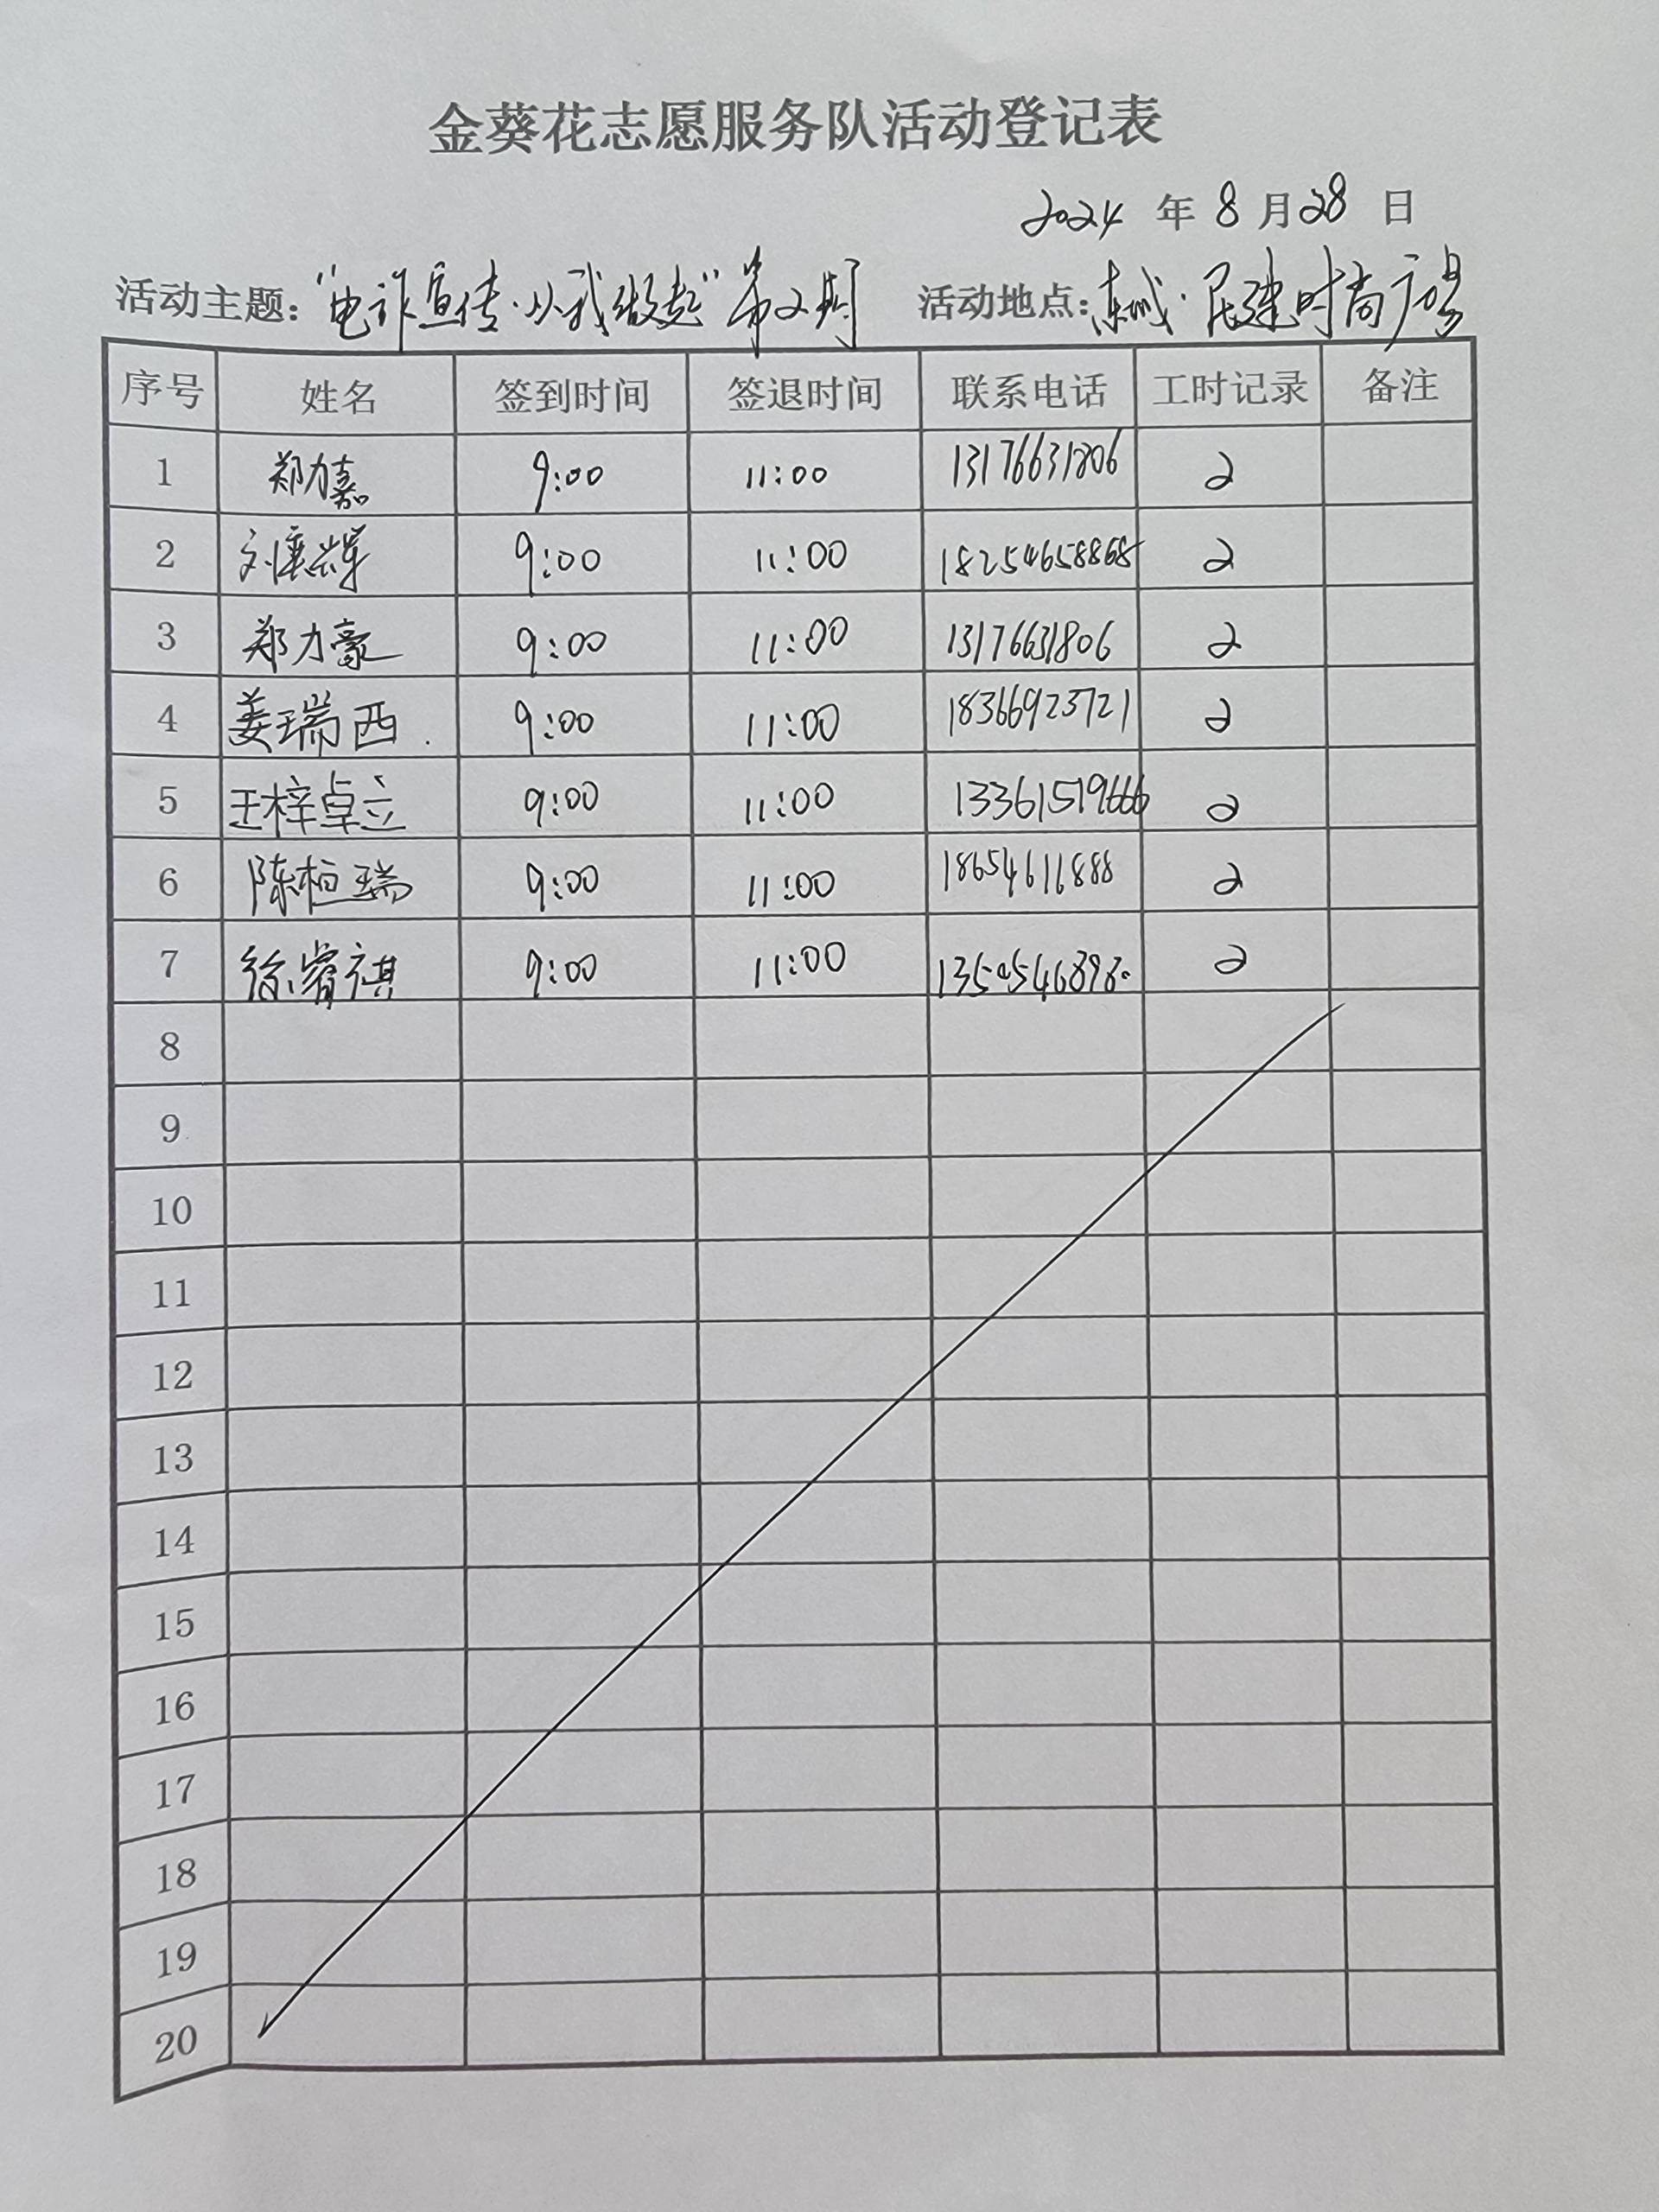 金葵花志愿服务队活动登记表
2024 年 8 月 28 日
活动主题: "电诈宣传·从我做起" 第2期 活动地点: 东城·民建时尚广场
序号 姓名 签到时间 签退时间 联系电话 工时记录 备注
1 郑力嘉 9:00 11:00 13176631806 2
2 刘 9:00 11:00 18254658868 2
3 郑力豪 9:00 11:00 13176631806 2
4 姜瑞西 9:00 11:00 18366923721 2
5 王梓卓立 9:00 11:00 13361519666 2
6 陈柏瑞 9:00 11:00 18654611888 2
7 徐睿祺 9:00 11:00 13505468980 2
8
9
10
11
12
13
14
15
16
17
18
19
20